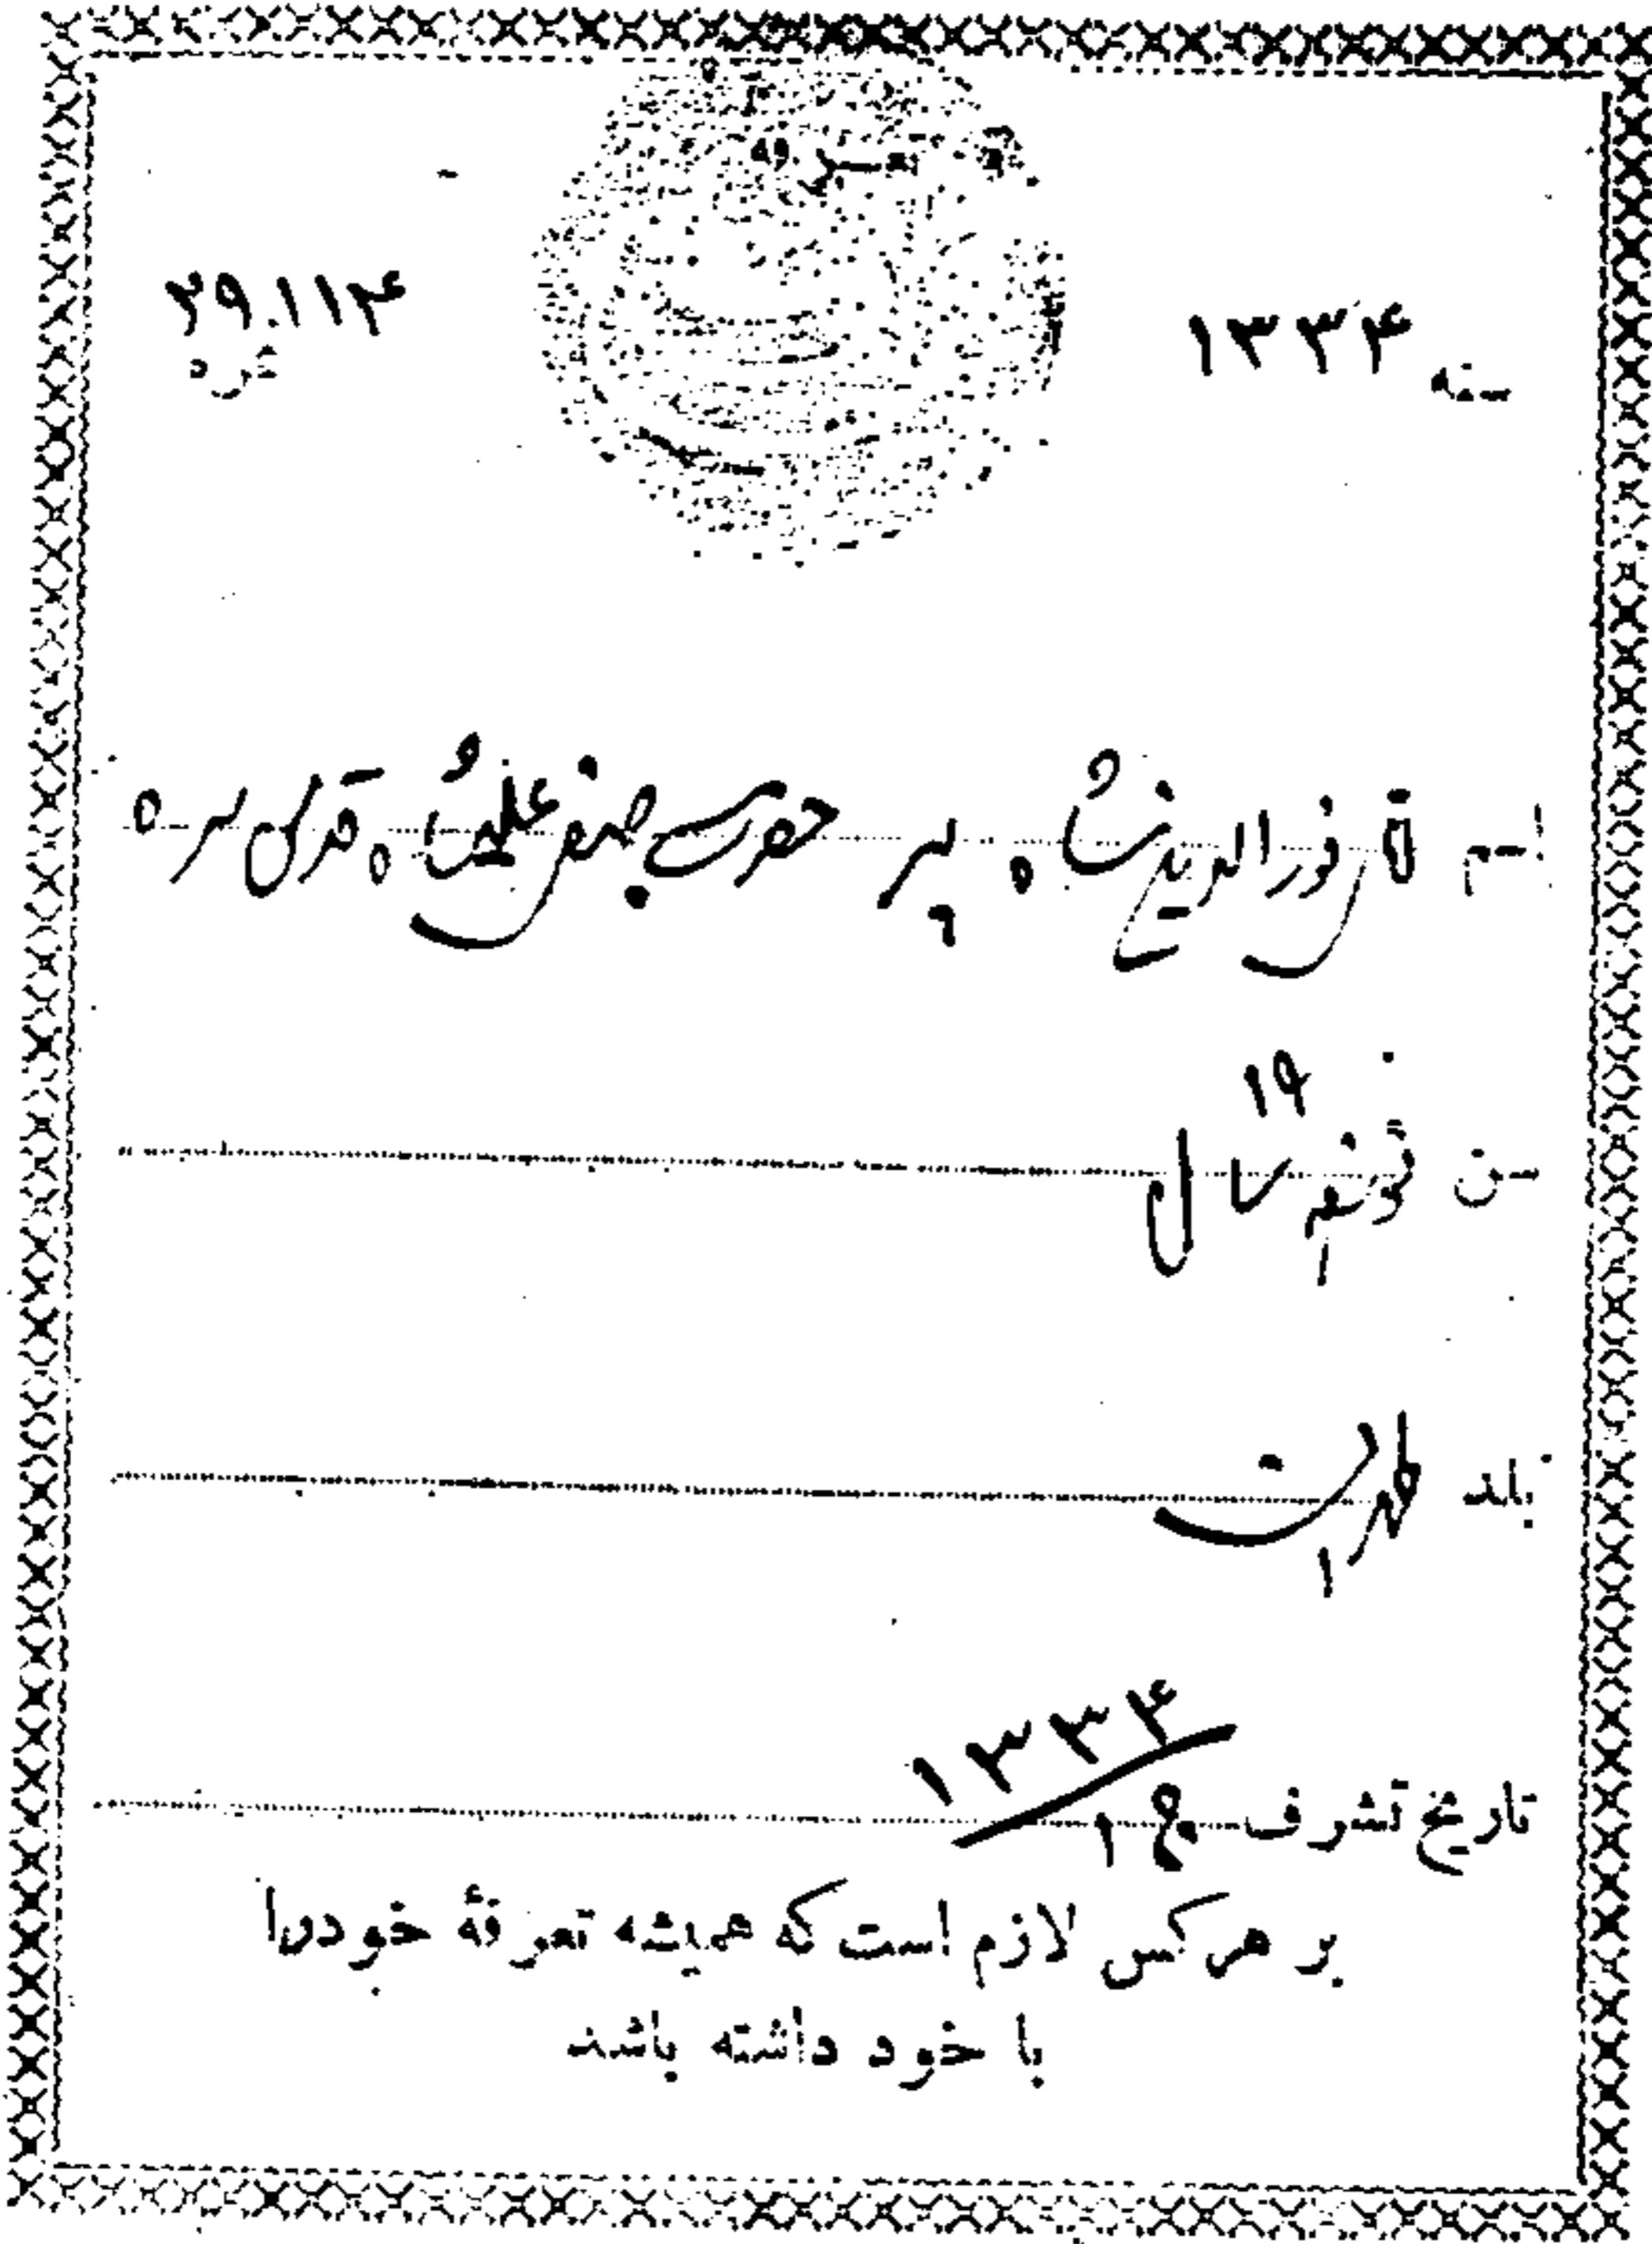 سنه ۱۳۳۴
۲۹۰۱۱۴
نمره
اسم آقای نورالدین شاه پسر حضرت صفی علیشاه قدس سره
۱۹
سن نوزدهم سال
بلد طهران
۱۳۳۴
تاریخ تشرف ج ۱
بر هر کس لازم است که همیشه تعرفهٔ خودرا
با خود داشته باشند